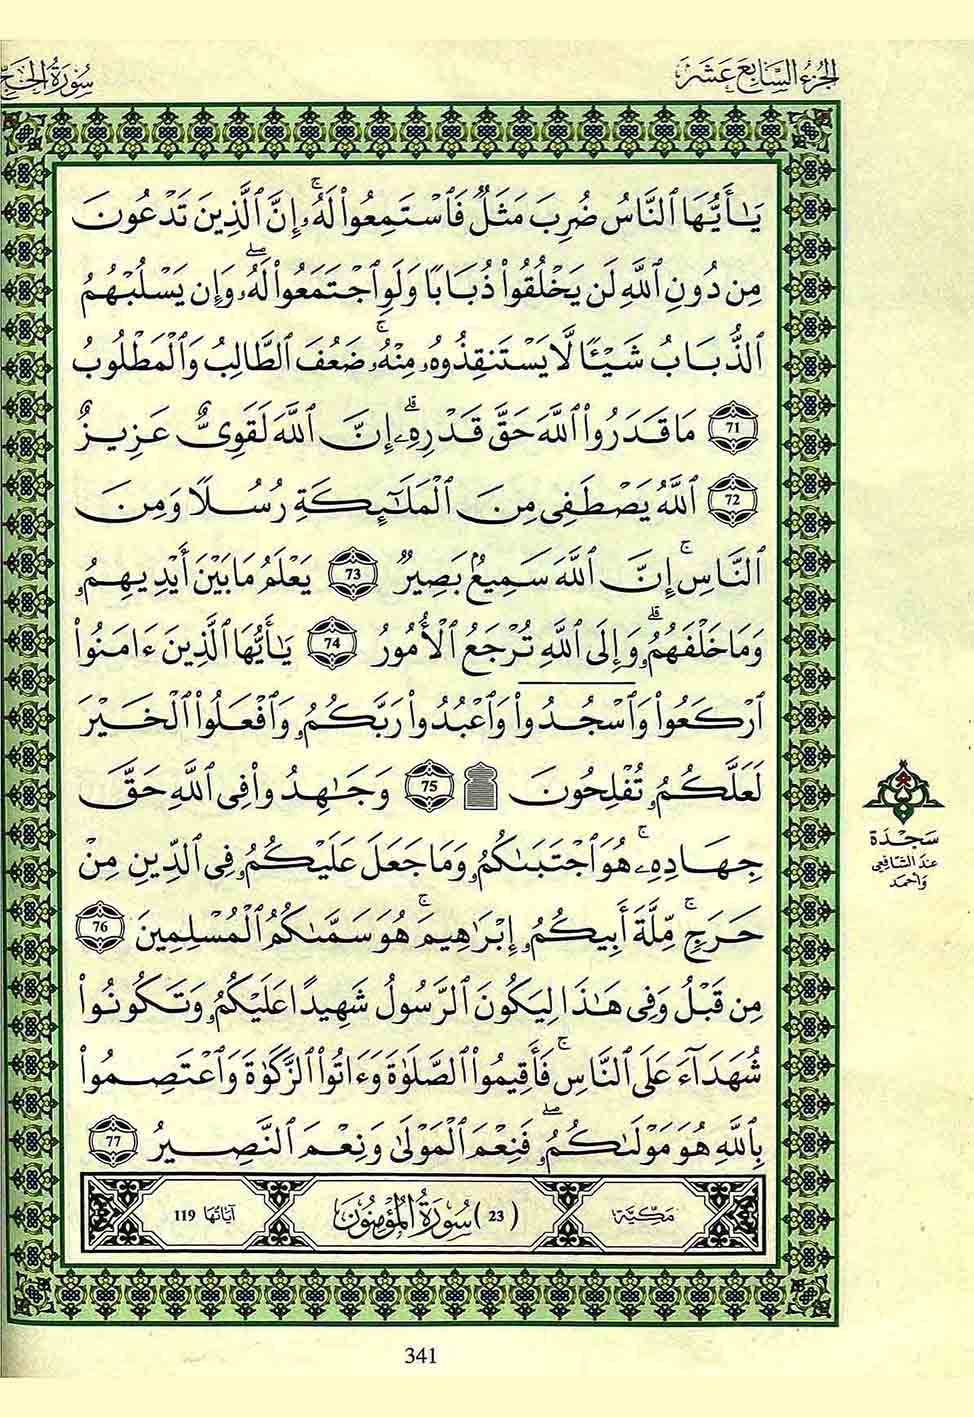 الجُزْءُ السَّابِعَ عَشَرَ
سُورَةُ الحَجِّ
يَـٰٓأَيُّهَا ٱلنَّاسُ ضُرِبَ مَثَلٌ فَٱسْتَمِعُوا۟ لَهُۥٓۚ إِنَّ ٱلَّذِينَ تَدْعُونَ
مِن دُونِ ٱللَّهِ لَن يَخْلُقُوا۟ ذُبَابًا وَلَوِ ٱجْتَمَعُوا۟ لَهُۥۖ وَإِن يَسْلُبْهُمُ
ٱلذُّبَابُ شَيْـًٔا لَّا يَسْتَنقِذُوهُۥ مِنْهُۥۚ ضَعُفَ ٱلطَّالِبُ وَٱلْمَطْلُوبُ
71 مَا قَدَرُوا۟ ٱللَّهَ حَقَّ قَدْرِهِۦٓۗ إِنَّ ٱللَّهَ لَقَوِىٌّ عَزِيزٌ
72 ٱللَّهُ يَصْطَفِى مِنَ ٱلْمَلَـٰٓئِكَةِ رُسُلًا وَمِنَ
ٱلنَّاسِۚ إِنَّ ٱللَّهَ سَمِيعٌۢ بَصِيرٌ 73 يَعْلَمُ مَا بَيْنَ أَيْدِيهِمُۥ
وَمَا خَلْفَهُمُۥۗ وَإِلَى ٱللَّهِ تُرْجَعُ ٱلْأُمُورُ 74 يَـٰٓأَيُّهَا ٱلَّذِينَ ءَامَنُوا۟
ٱرْكَعُوا۟ وَٱسْجُدُوا۟ وَٱعْبُدُوا۟ رَبَّكُمُۥ وَٱفْعَلُوا۟ ٱلْخَيْرَ
لَعَلَّكُمُۥ تُفْلِحُونَ ۩ 75 وَجَـٰهِدُوا۟ فِى ٱللَّهِ حَقَّ
جِهَادِهِۦۚ هُوَ ٱجْتَبَىٰكُمُۥ وَمَا جَعَلَ عَلَيْكُمُۥ فِى ٱلدِّينِ مِنْ
حَرَجٍۚ مِّلَّةَ أَبِيكُمُۥٓ إِبْرَٰهِيمَۚ هُوَ سَمَّىٰكُمُ ٱلْمُسْلِمِينَ 76
مِن قَبْلُ وَفِى هَـٰذَا لِيَكُونَ ٱلرَّسُولُ شَهِيدًا عَلَيْكُمُۥ وَتَكُونُوا۟
شُهَدَآءَ عَلَى ٱلنَّاسِۚ فَأَقِيمُوا۟ ٱلصَّلَوٰةَ وَءَاتُوا۟ ٱلزَّكَوٰةَ وَٱعْتَصِمُوا۟
بِٱللَّهِ هُوَ مَوْلَىٰكُمُۥۖ فَنِعْمَ ٱلْمَوْلَىٰ وَنِعْمَ ٱلنَّصِيرُ 77
سَجْدَة
عند الشافعي
وَأحمد
مَكِّيَّة
(23) سُورَةُ المُؤْمِنُونَ
آيَاتُهَا 119
341